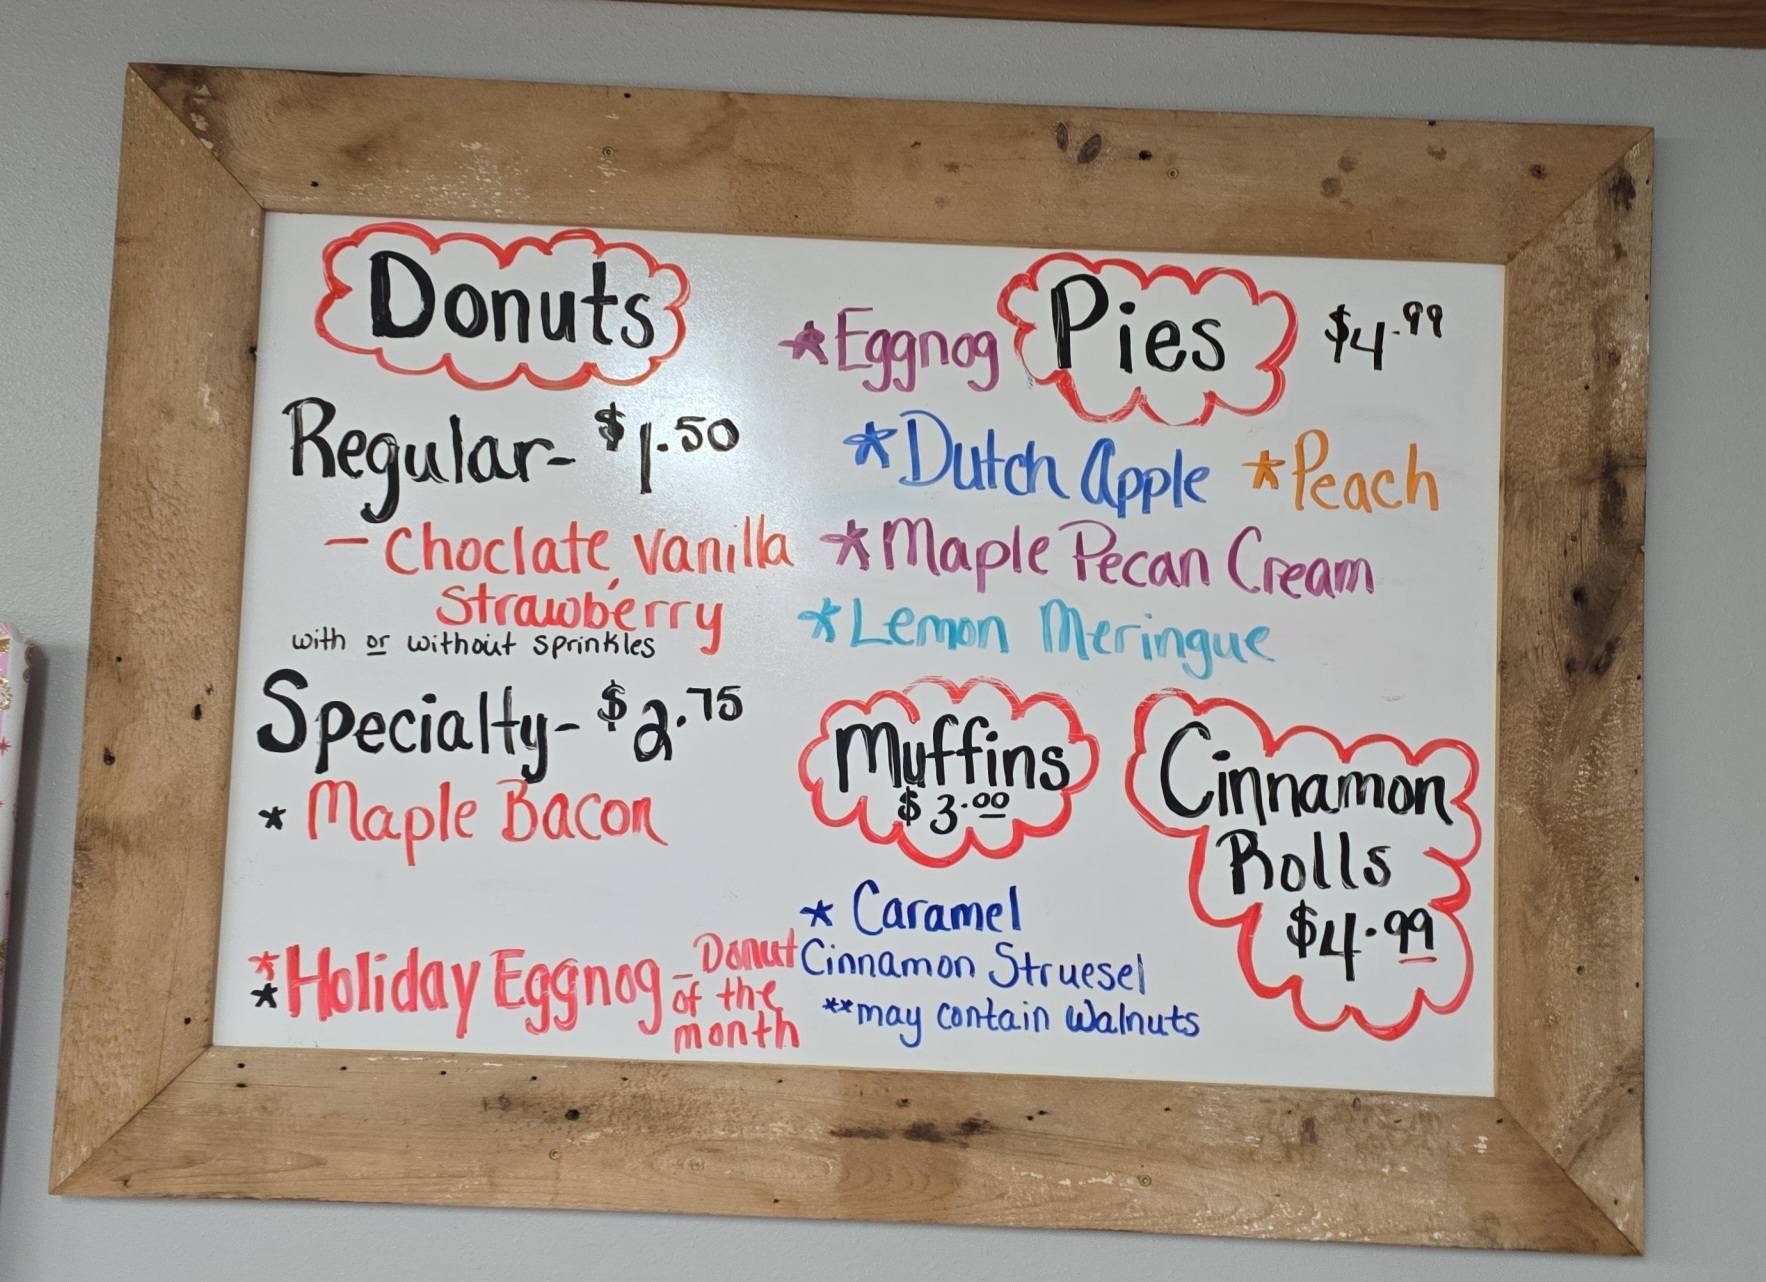 Donuts
Regular- $1.50
- Choclate, Vanilla
Strawberry
with or without sprinkles
Specialty- $2.75
* Maple Bacon
** Holiday Eggnog - Donut
of the
month
Pies $4.99
*Eggnog
*Dutch Apple *Peach
*Maple Pecan Cream
*Lemon Meringue
Muffins
$3.00
* Caramel
Cinnamon Struesel
**may contain Walnuts
Cinnamon
Rolls
$4.99